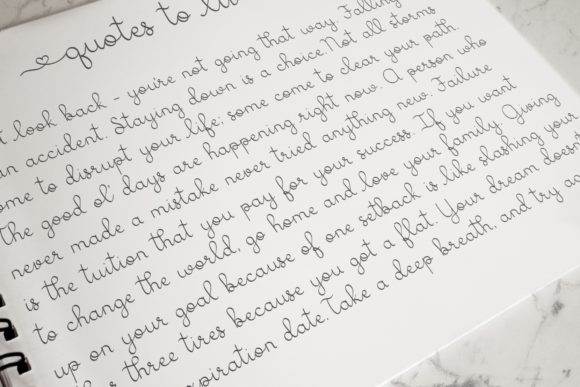 quotes to
look back - you're not going that way. Falling
an accident. Staying down is a choice.Not all storms
to disrupt your life; some come to clear your path.
The good ol' days are happening right now. A person who
never made a mistake never tried anything new. Failure
is the tuition that you pay for your success. If you want
to change the world, go home and love your family. Giving
up on your goal because of one setback is like slashing your
three tires because you got a flat. Your dream
date.Take a deep breath, and try